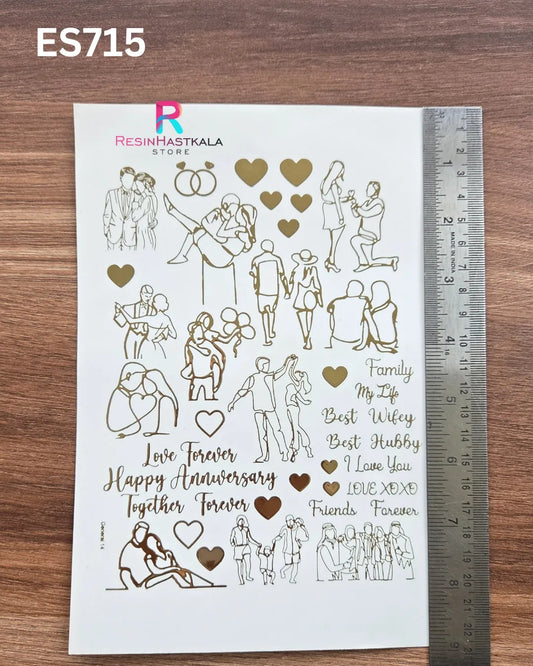 ES715
R
RESINHASTKALA
STORE
Family
My Life
Best Wifey
Best Hubby
I Love You
LOVE XOXO
Friends Forever
Love Forever
Happy Anniversary
Together Forever
MADE IN INDIA
1
2
3
4
5
6
7
8
9